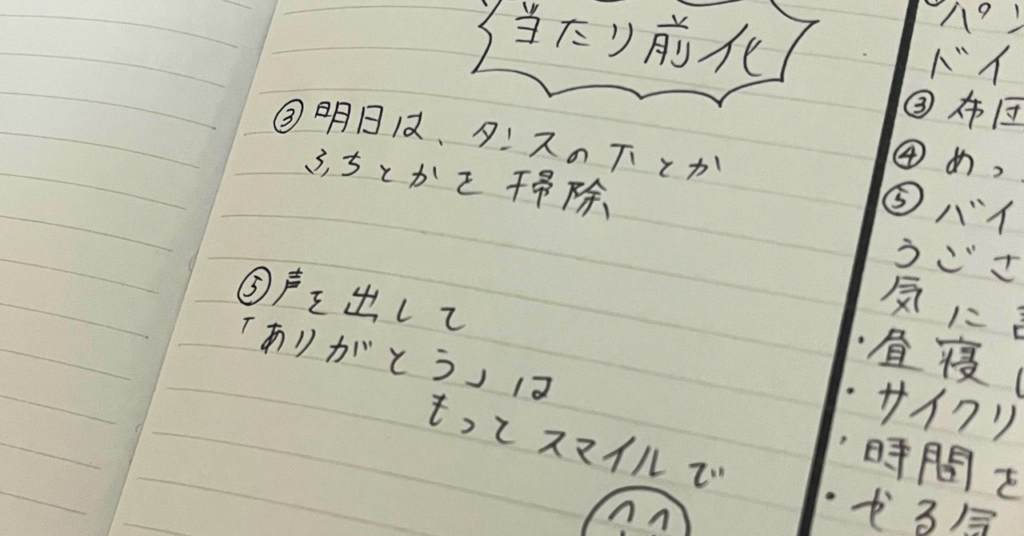 当たり前化
③明日は、タンスの下とか
ふちとかを掃除、
⑤声を出して
「ありがとう」は
もってスマイルで
パン
ドイ
③布団
④めっ
⑤バイ
うごさ
気に
・昼寝し
・サイクリ
・時間を
・やる気